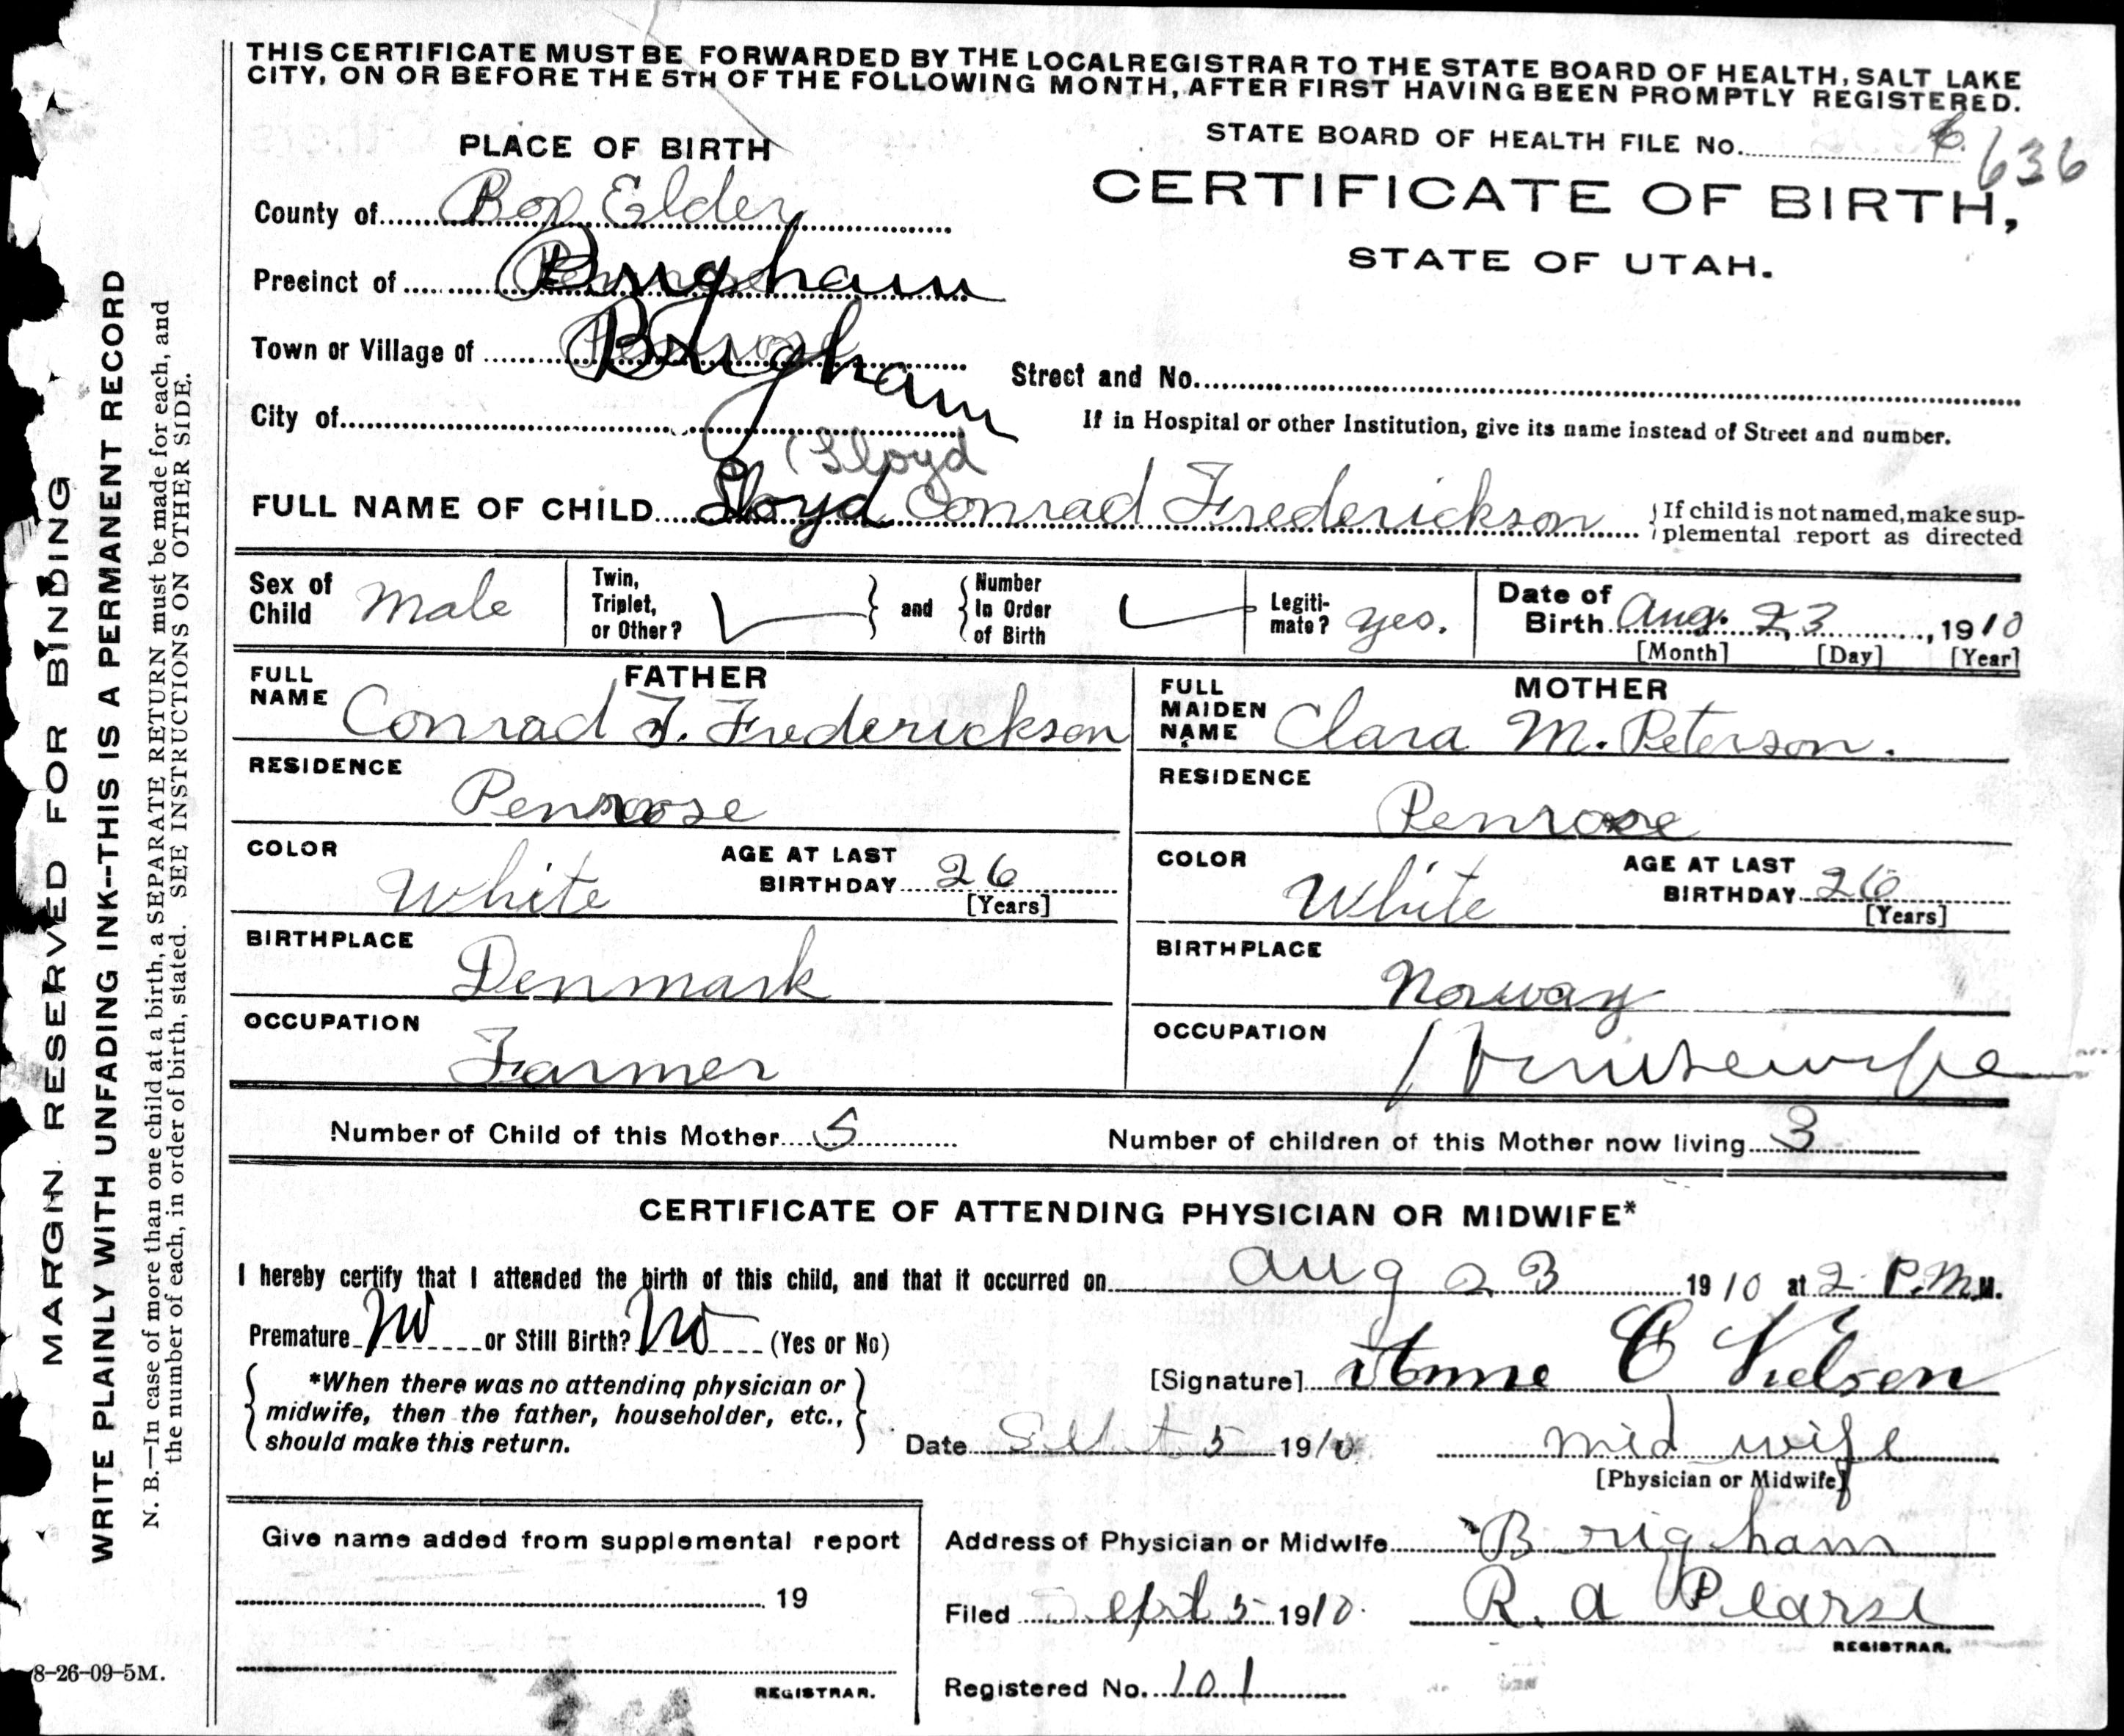 THIS CERTIFICATE MUST BE FORWARDED BY THE LOCAL REGISTRAR TO THE STATE BOARD OF HEALTH, SALT LAKE
CITY, ON OR BEFORE THE 5TH OF THE FOLLOWING MONTH, AFTER FIRST HAVING BEEN PROMPTLY REGISTERED.
PLACE OF BIRTH
STATE BOARD OF HEALTH FILE No. 636
CERTIFICATE OF BIRTH,
STATE OF UTAH.
County of Box Elder
Precinct of Brigham
Town or Village of Brigham
Street and No.
City of
If in Hospital or other Institution, give its name instead of Street and number.
(Lloyd
FULL NAME OF CHILD Lloyd Conrad Frederickson
If child is not named, make sup-
plemental report as directed
Sex of Child Male
Twin, Triplet, or Other?
and
Number In Order of Birth
Legiti-mate? yes.
Date of Birth Aug. 23, 1910
[Month] [Day] [Year]
FATHER
FULL NAME Conrad F. Frederickson
RESIDENCE Penrose
COLOR White
AGE AT LAST BIRTHDAY 26
[Years]
BIRTHPLACE Denmark
OCCUPATION Farmer
MOTHER
FULL MAIDEN NAME Clara M. Peterson.
RESIDENCE Penrose
COLOR White
AGE AT LAST BIRTHDAY 26
[Years]
BIRTHPLACE Norway
OCCUPATION Housewife
Number of Child of this Mother 5
Number of children of this Mother now living 3
CERTIFICATE OF ATTENDING PHYSICIAN OR MIDWIFE*
I hereby certify that I attended the birth of this child, and that it occurred on Aug 23 1910 at 2 P.M. M.
Premature No or Still Birth? No (Yes or No)
*When there was no attending physician or
midwife, then the father, householder, etc.,
should make this return.
[Signature] Anne C Nielsen
Date Sept 5 1910
mid wife
[Physician or Midwife]
Give name added from supplemental report
19
REGISTRAR.
Address of Physician or Midwife Brigham
Filed Sept 5 1910. R. A Pearse
REGISTRAR.
Registered No. 101
8-26-09-5M.
MARGIN RESERVED FOR BINDING
WRITE PLAINLY WITH UNFADING INK--THIS IS A PERMANENT RECORD
N. B.—In case of more than one child at a birth, a SEPARATE RETURN must be made for each, and
the number of each, in order of birth, stated. SEE INSTRUCTIONS ON OTHER SIDE.